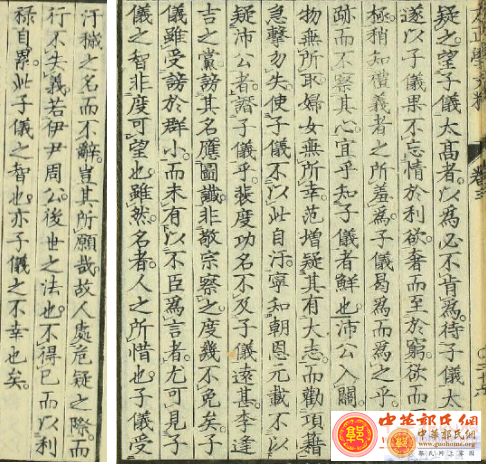 疑之望子儀太高者以為必不肯為待子儀太
遂以子儀果不忘情於利欲奢而至於窮欲而
極稍知禮義者之所羞為子儀曷為而為之乎
跡而不察其心宜乎知子儀者鮮也沛公入關
物無所取婦女無所幸范增疑其有大志而勸項藉
急擊勿失使子儀不以此自汙寧知朝恩元載不以
疑沛公者譖子儀乎裴度功名不及子儀遠甚李逢
吉之黨謗其名應圖讖非敬宗察之度幾不免矣子
儀雖受謗於群小而未有以不臣為言者尤可見子
儀之智非度可望也雖然名者人之所惜也子儀受
汙穢之名而不辭豈其所願哉故人處危疑之際而
行不失義若伊尹周公後世之法也不得已而以利
祿自累此子儀之智也亦子儀之不幸也矣
中華郭氏網
中華郭氏網
www.guohome.org